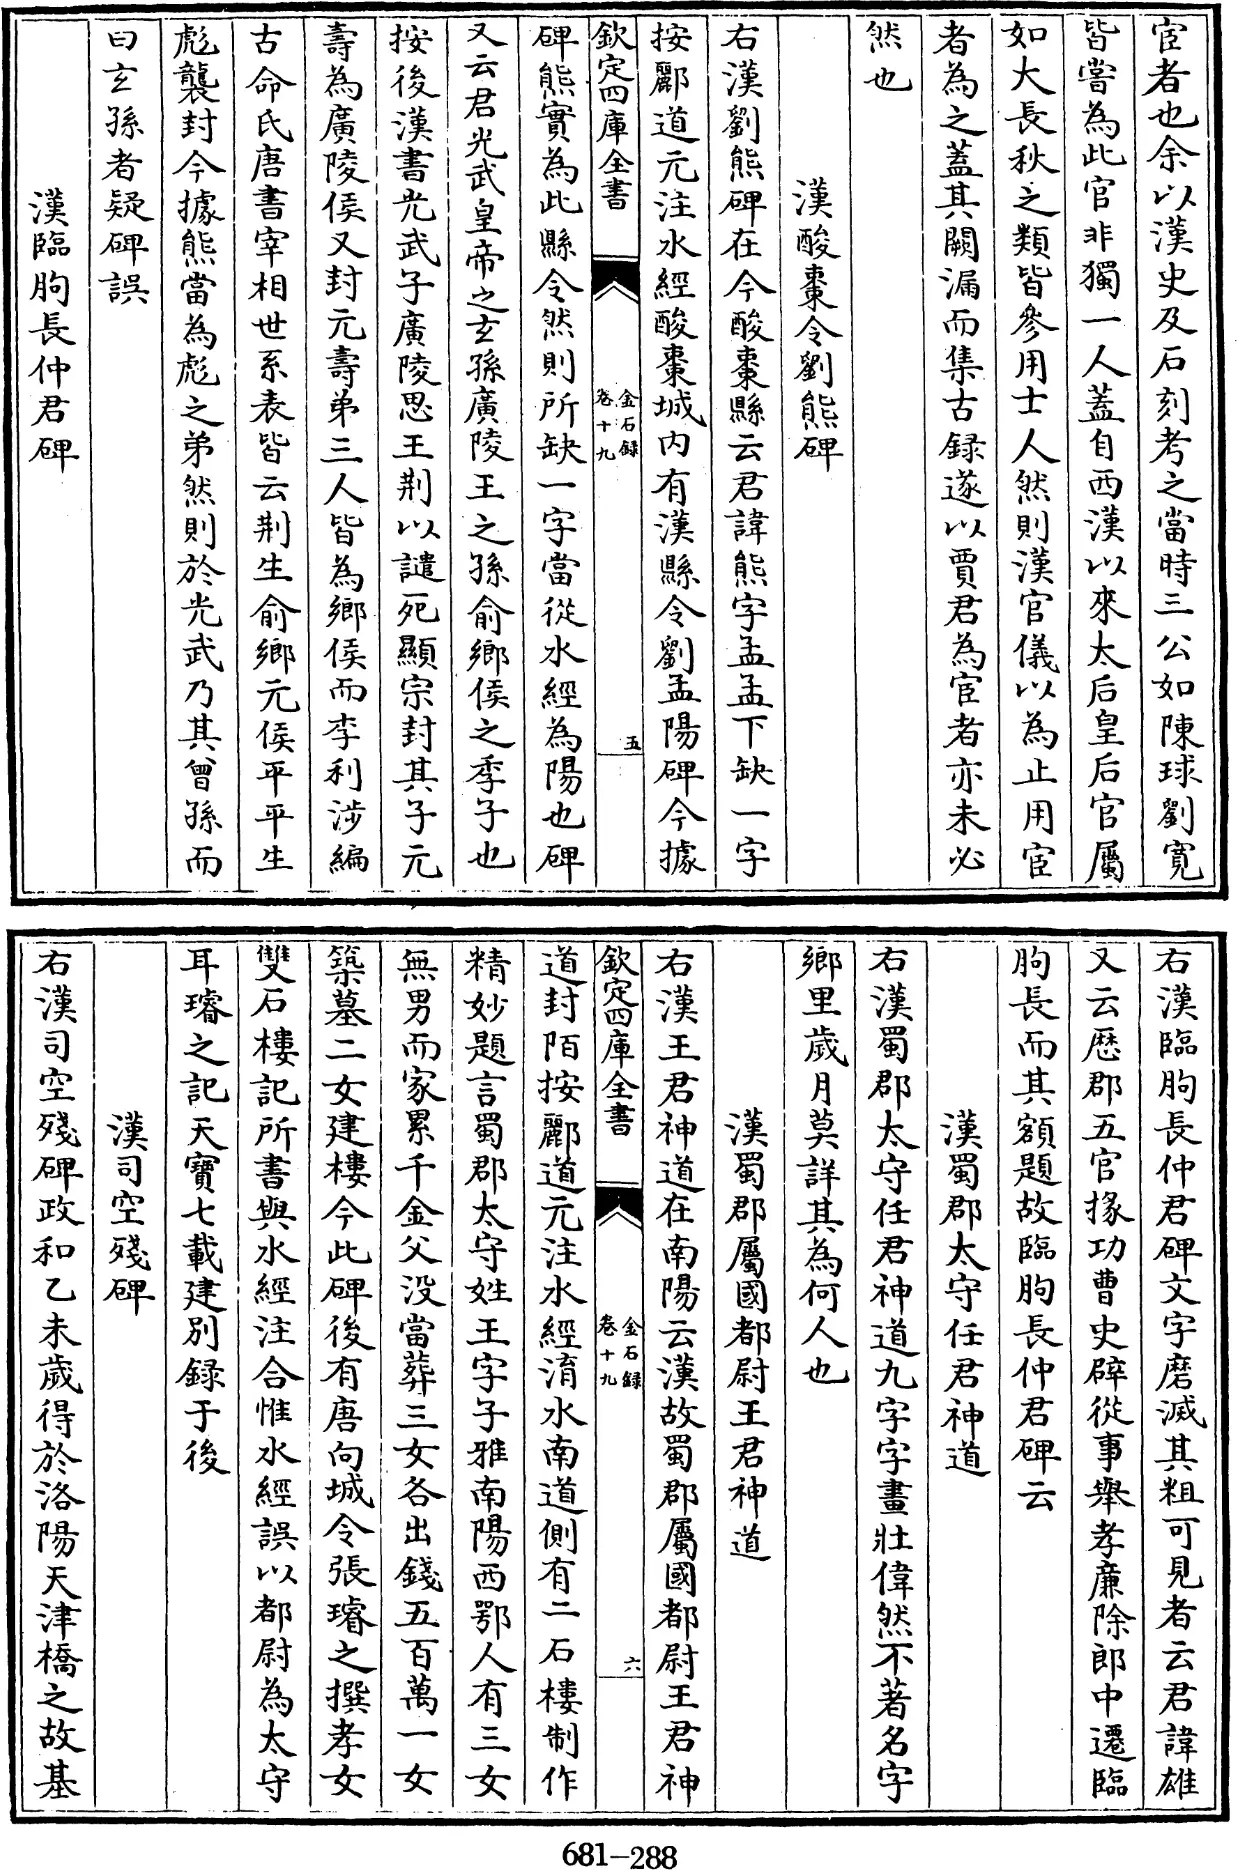 宦者也余以漢史及石刻考之當時三公如陳球劉寛
皆嘗為此官非獨一人蓋自西漢以來太后皇后官屬
如大長秋之類皆參用士人然則漢官儀以為止用宦
者為之蓋其闕漏而集古録遂以賈君為宦者亦未必
然也
漢酸棗令劉熊碑
右漢劉熊碑在今酸棗縣云君諱熊字孟孟下缺一字
按酈道元注水經酸棗城内有漢縣令劉孟陽碑今據
欽定四庫全書
金石録
卷十九
五
碑熊實為此縣令然則所缺一字當從水經為陽也碑
又云君光武皇帝之玄孫廣陵王之孫俞鄉侯之季子也
按後漢書光武子廣陵思王荆以譴死顯宗封其子元
壽為廣陵侯又封元壽弟三人皆為鄉侯而李利渉編
古命氏唐書宰相世系表皆云荆生俞鄉元侯平平生
彪襲封今據熊當為彪之弟然則於光武乃其曾孫而
曰玄孫者疑碑誤
漢臨朐長仲君碑
右漢臨朐長仲君碑文字磨滅其粗可見者云君諱雄
又云歴郡五官掾功曹史辟從事舉孝廉除郎中遷臨
朐長而其額題故臨朐長仲君碑云
漢蜀郡太守任君神道
右漢蜀郡太守任君神道九字字畫壯偉然不著名字
鄉里歲月莫詳其為何人也
漢蜀郡屬國都尉王君神道
右漢王君神道在南陽云漢故蜀郡屬國都尉王君神
欽定四庫全書
金石録
卷十九
六
道封陌按酈道元注水經淯水南道側有二石樓制作
精妙題言蜀郡太守姓王字子雅南陽西鄂人有三女
無男而家累千金父没當葬三女各出錢五百萬一女
築墓二女建樓今此碑後有唐向城令張璿之撰孝女
雙石樓記所書與水經注合惟水經誤以都尉為太守
耳璿之記天寶七載建别録于後
漢司空殘碑
右漢司空殘碑政和乙未歲得於洛陽天津橋之故基
681-288